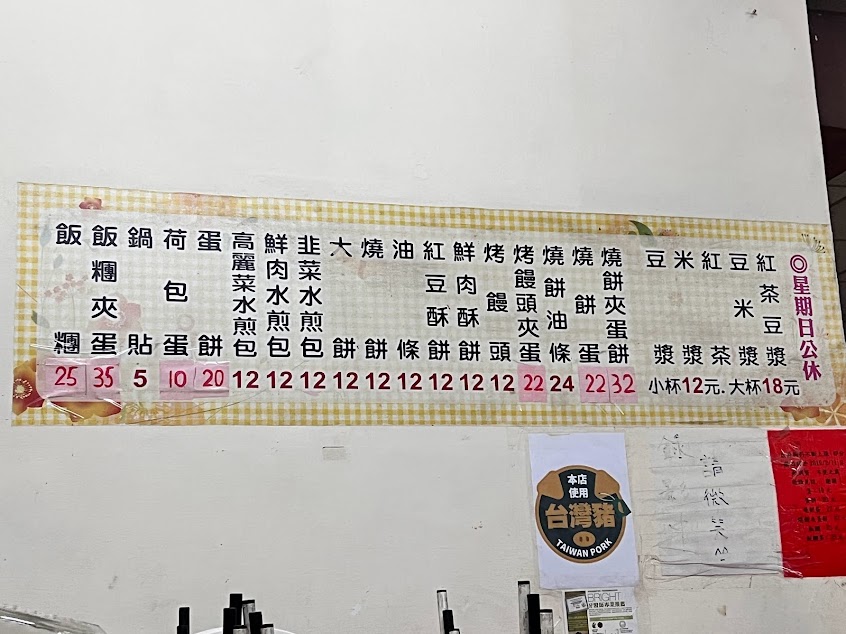 ◎星期日公休
紅茶豆漿
豆米漿
紅茶
米漿
豆漿
小杯12元.大杯18元
燒餅夾蛋餅 32
燒餅蛋 22
燒餅油條 24
烤饅頭夾蛋 22
烤饅頭 12
鮮肉酥餅 12
紅豆酥餅 12
油條 12
燒餅 12
大餅 12
韭菜水煎包 12
鮮肉水煎包 12
高麗菜水煎包 12
蛋餅 20
荷包蛋 10
鍋貼 5
飯糰夾蛋 35
飯糰 25
本店
使用
台灣豬
TAIWAN PORK
請微笑
BRIGHT